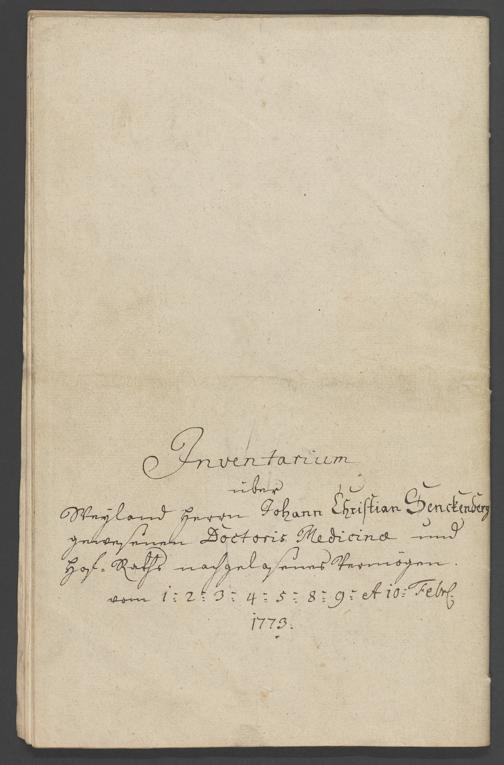 Inventarium
über
Weyland Herrn Johann Christian Senckenberg
gewesenen Doctoris Medicinæ und
Hof-Raths nachgelasenes Vermögen.
vom 1: 2: 3: 4: 5: 8: 9: et 10: Febr.
1773.